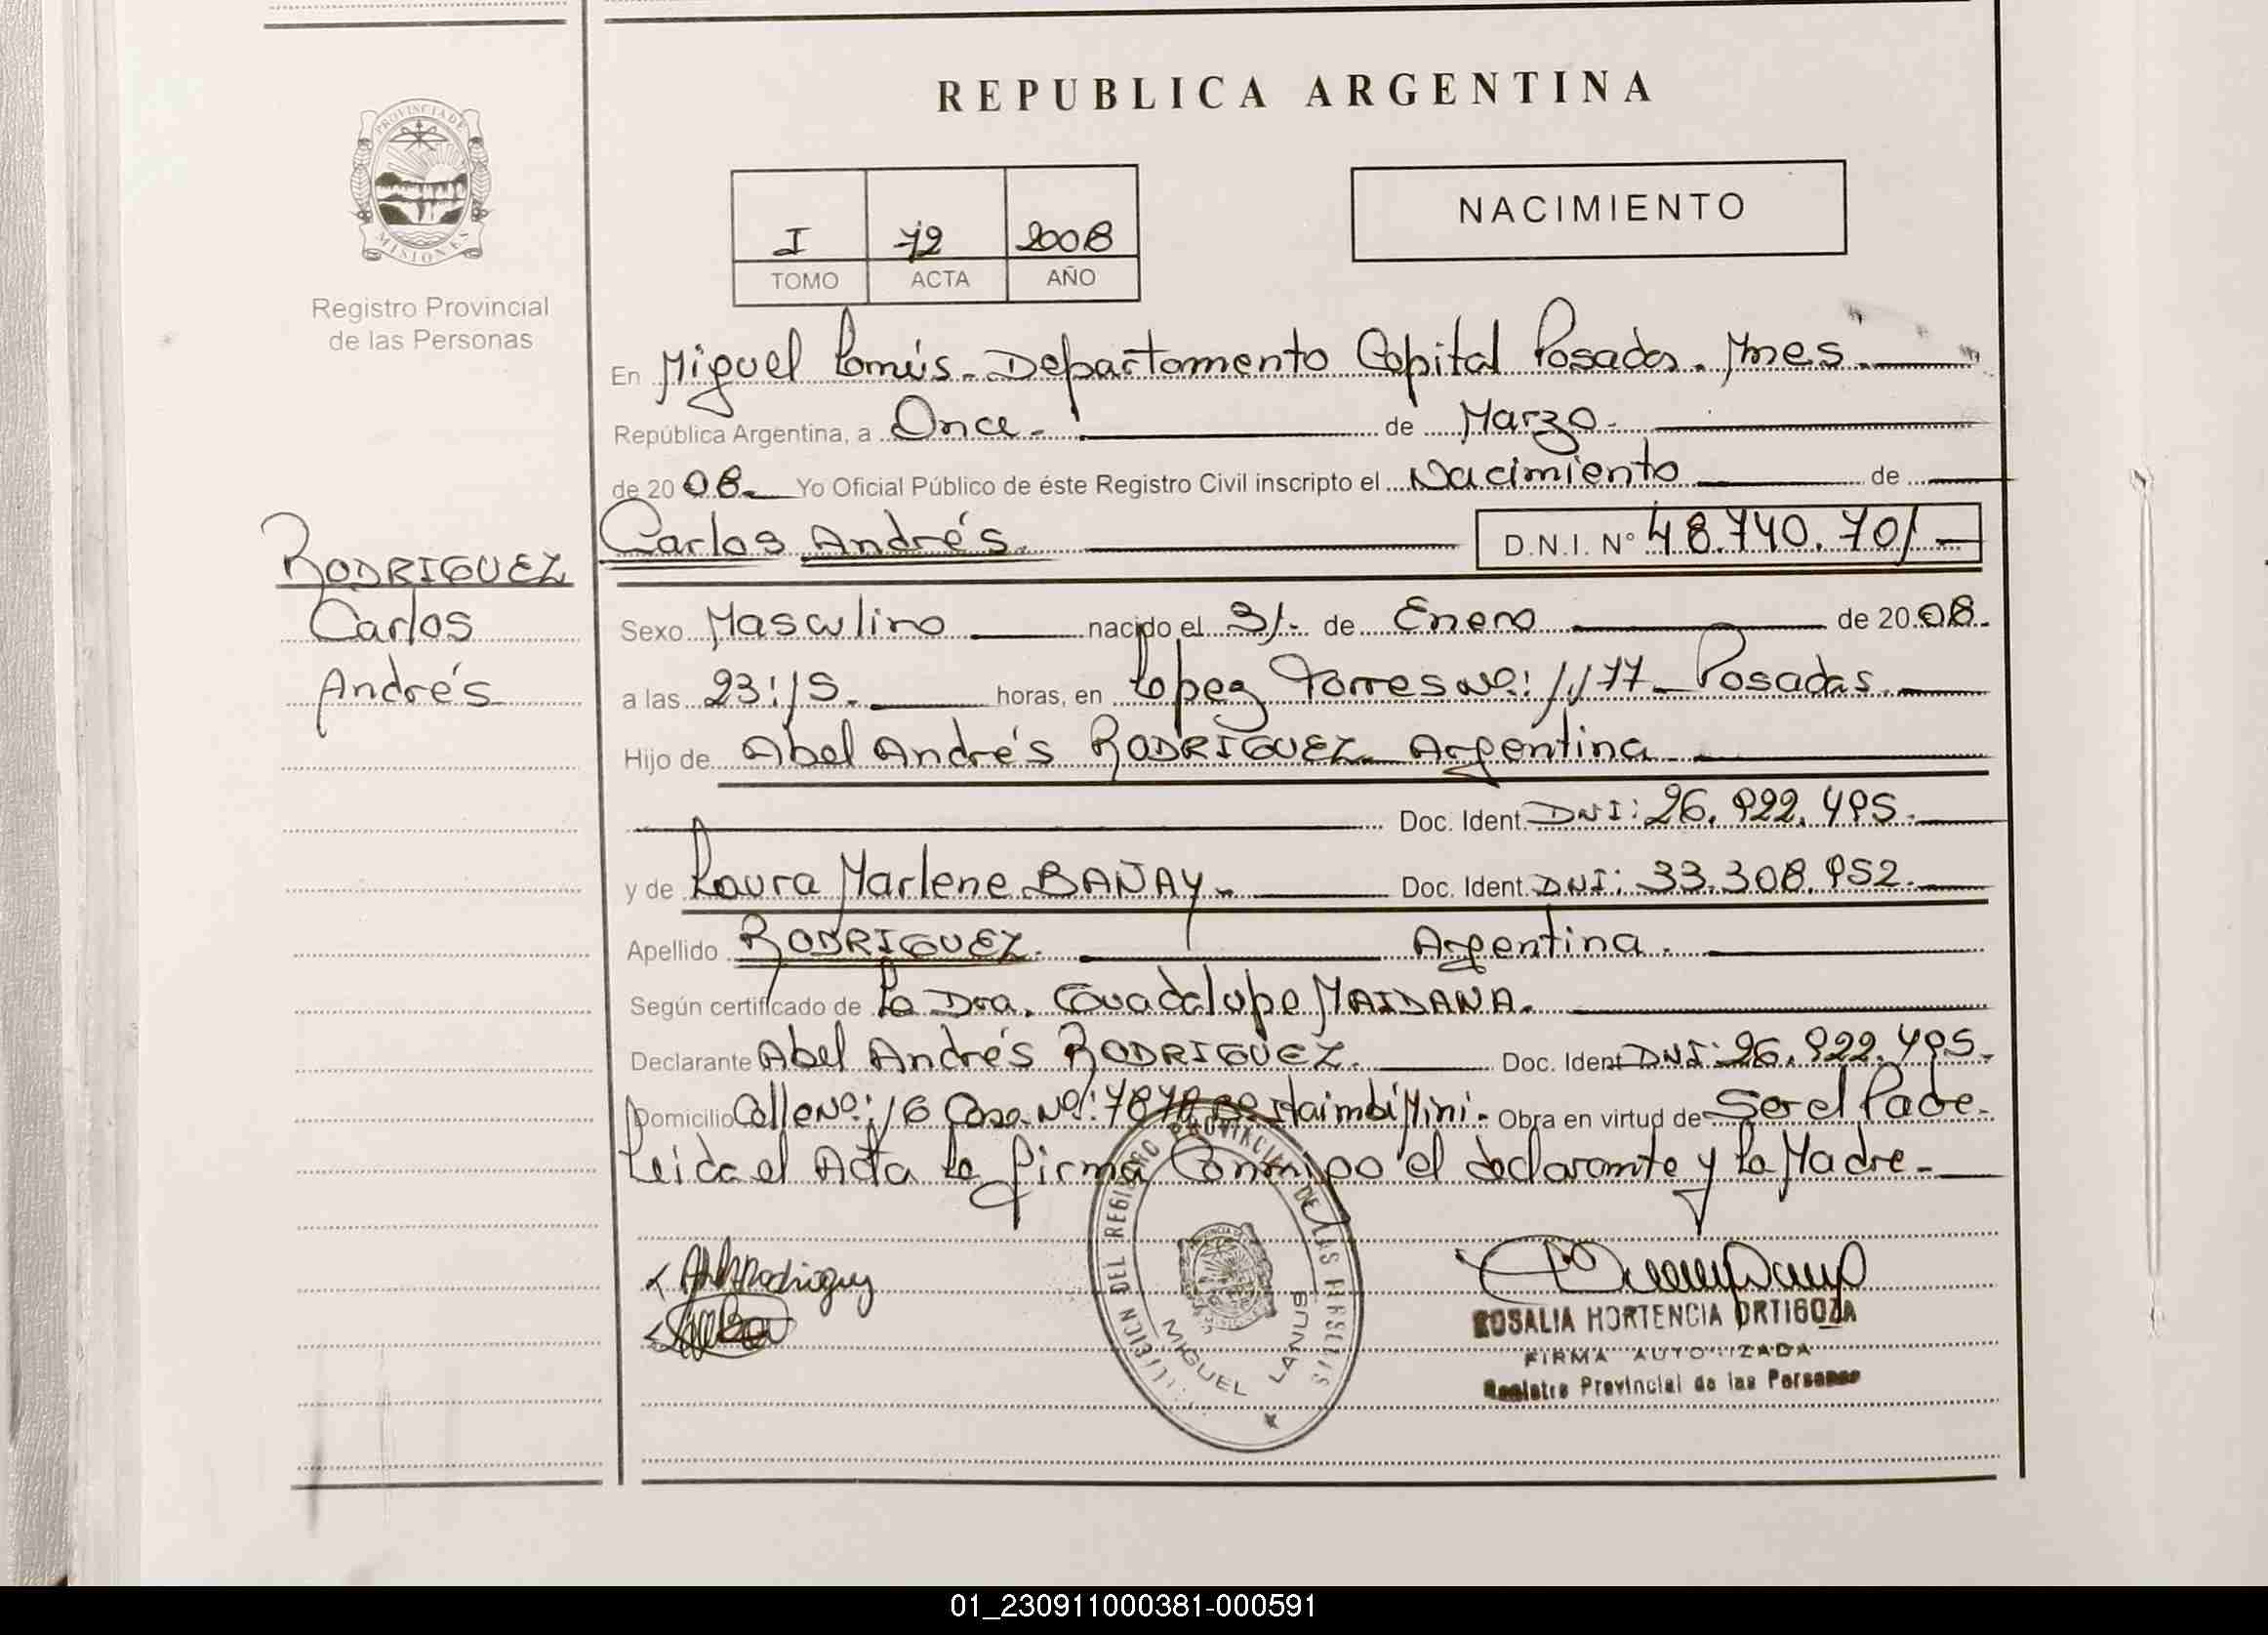 REPUBLICA ARGENTINA
PROVINCIA DE
MISIONES
Registro Provincial
de las Personas
NACIMIENTO
I 72 2008
TOMO ACTA AÑO
En Miguel Lanús - Departamento Capital Posadas. Mnes.
República Argentina, a Once - de Marzo.
de 20 08. Yo Oficial Público de éste Registro Civil inscripto el Nacimiento de
Carlos Andrés. D.N.I. Nº 48.740.701
RODRIGUEZ
Carlos
Andrés
Sexo Masculino nacido el 31. de Enero de 20 08.
a las 23:15. horas, en Lopez Torres Nº: 1177 - Posadas.
Hijo de Abel Andrés RODRIGUEZ - Argentina
Doc. Ident. DNI: 26.922.495.
y de Laura Marlene Doc. Ident. DNI: 33.308.952.
Apellido RODRIGUEZ. Argentina.
Según certificado de La Dra. Guadalupe MAIDANA.
Declarante Abel Andrés RODRIGUEZ. Doc. Ident DNI: 26.922.495.
Domicilio Calle Nº: 16 Casa Nº: 7878 Bº Itaimbé Mini - Obra en virtud de Ser el Padre.
Leida el Acta la firma Conmigo el declarante y la Madre -
DEL REGISTRO PROVINCIAL DE LAS PERSONAS
MIGUEL LANUS
ROSALIA HORTENCIA ORTIGOZA
FIRMA AUTORIZADA
Registro Provincial de las Personas
01_230911000381-000591